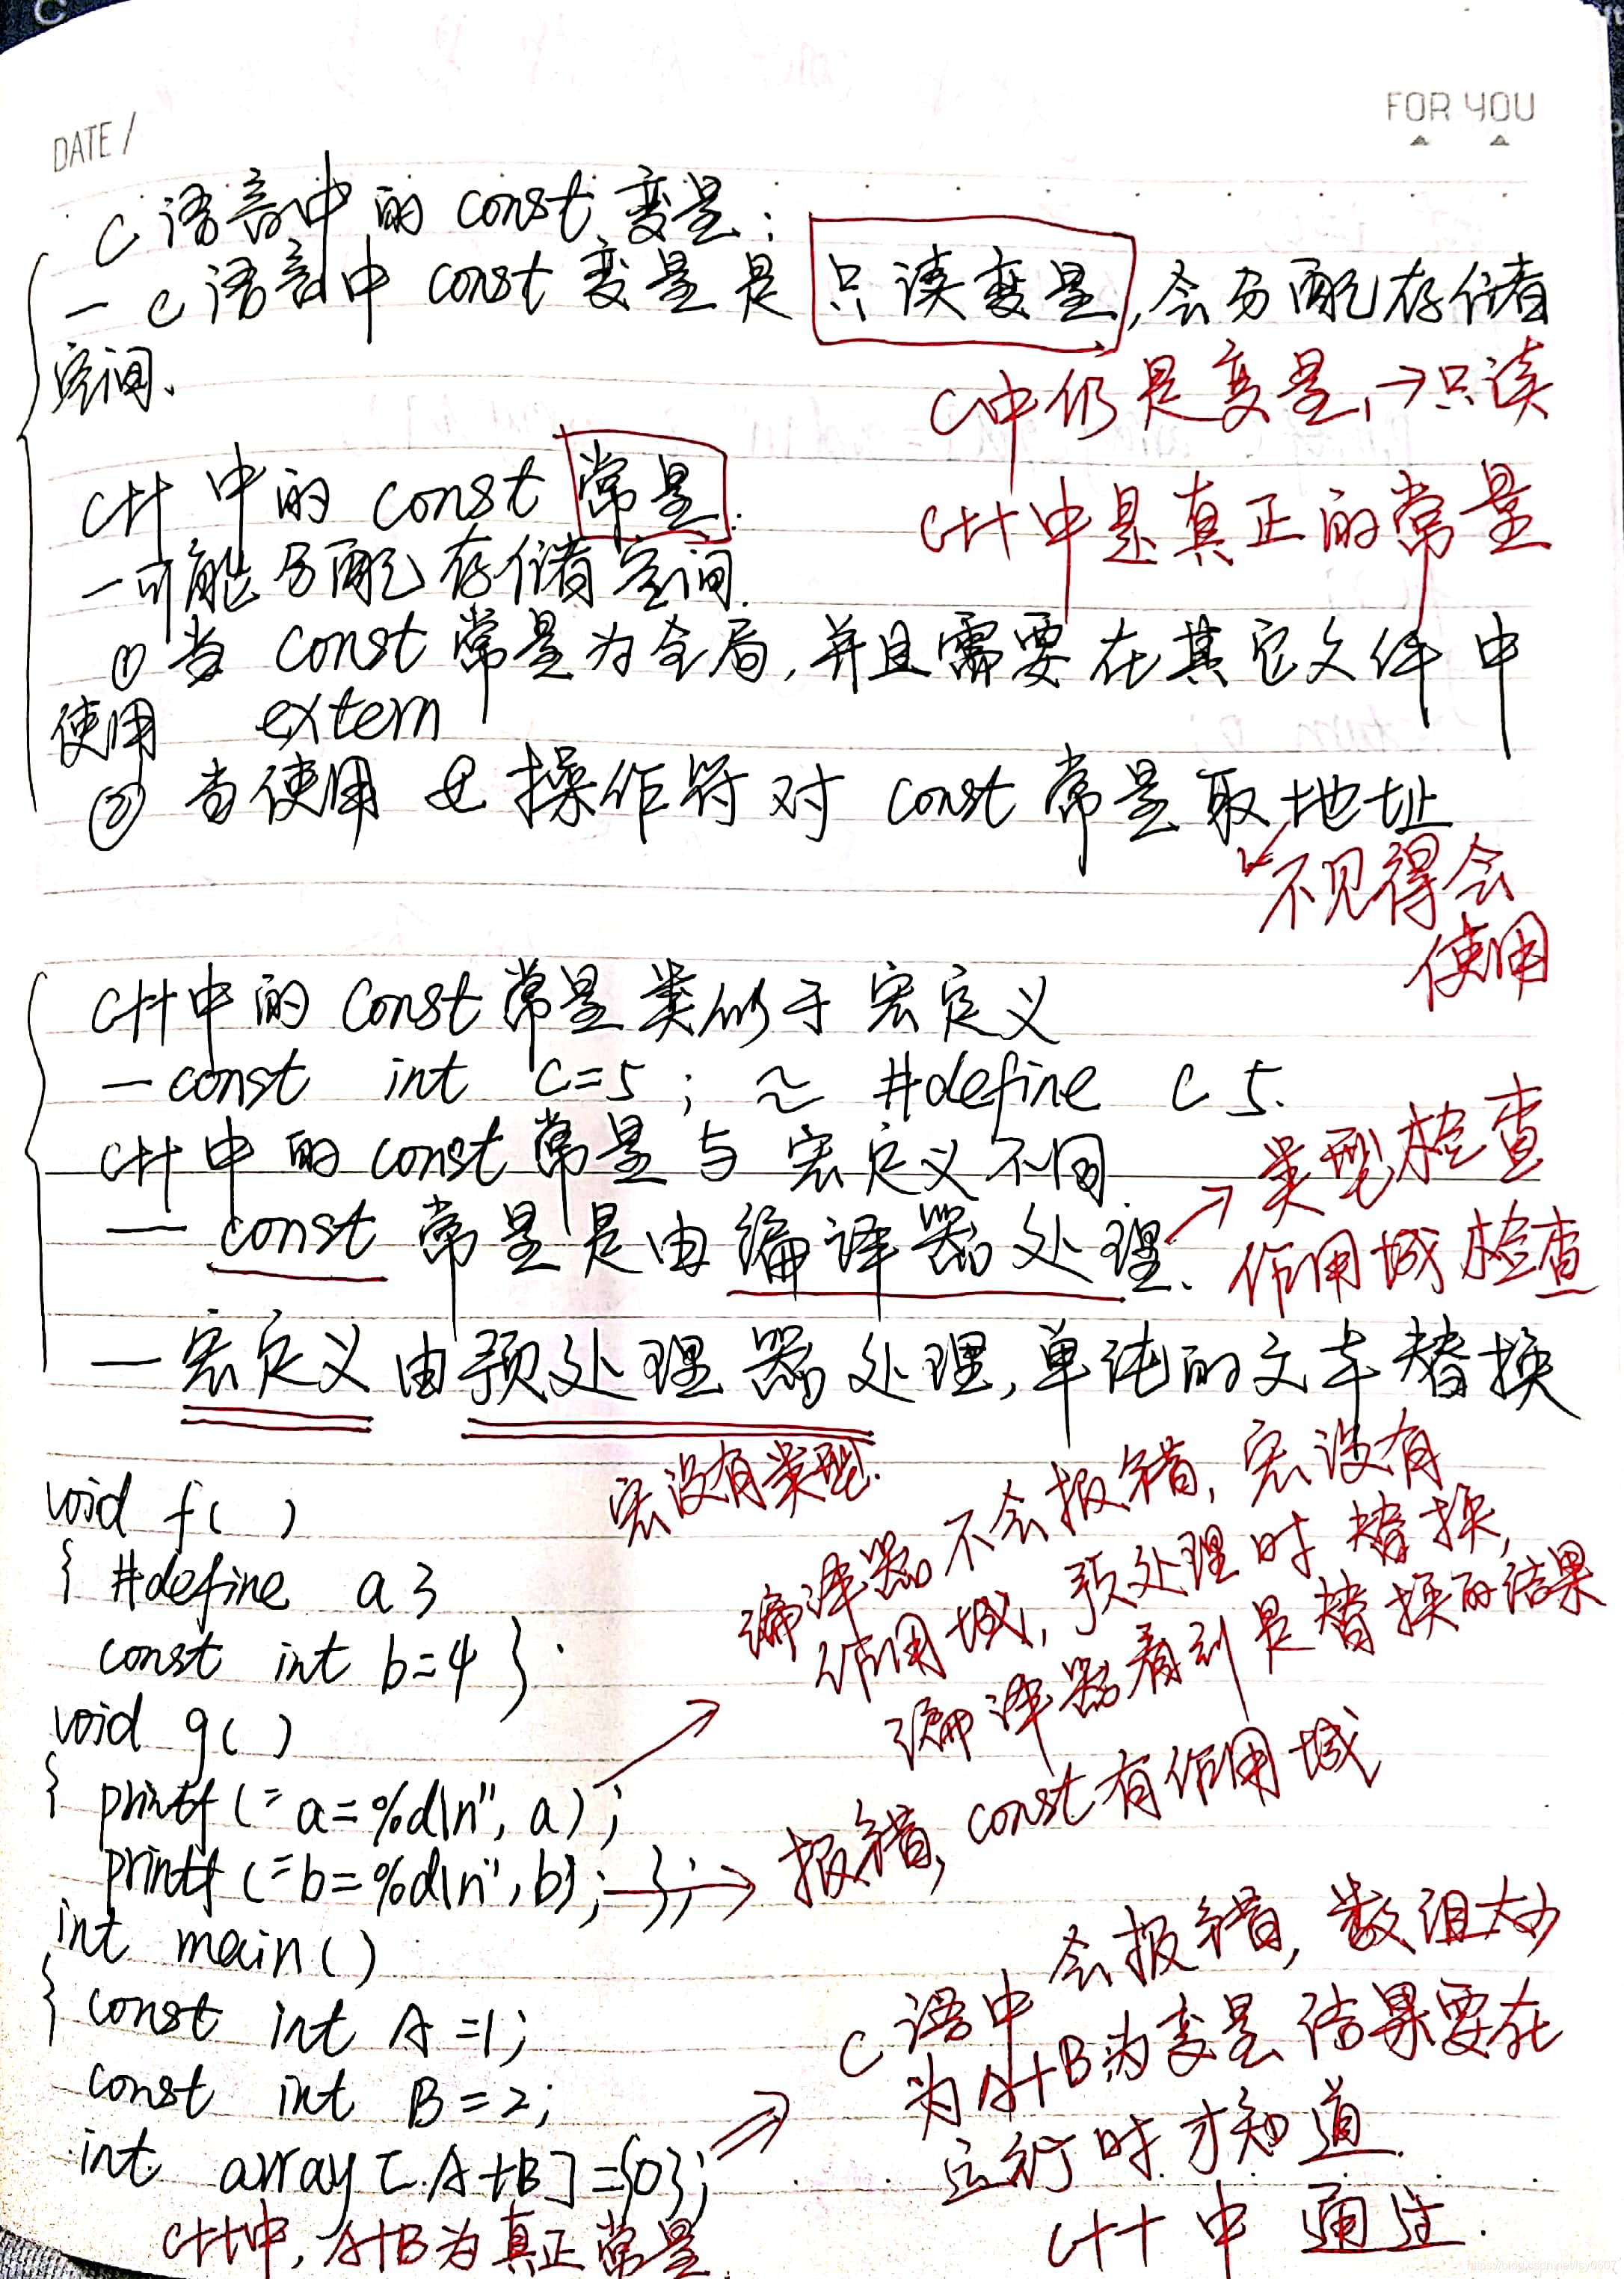 FOR YOU
DATE /
C语言中的const变量:
— C语言中const变量是只读变量,会分配存储
空间.
C中仍是变量,→只读
C++中的const常量.
C++中是真正的常量
—可能分配存储空间.
① 当const常量为全局,并且需要在其它文件中
使用 extern
② 当使用 & 操作符对 const常量取地址
不见得会
使用
C++中的const常量类似于宏定义
— const int c=5; ≈ #define c 5.
C++中的const常量与宏定义不同.
类型检查
— const 常量是由编译器处理.
作用域检查
— 宏定义由预处理器处理,单纯的文本替换
宏没有类型.
void f( )
编译器不会报错,宏没有
{ #define a 3
作用域,预处理时替换,
const int b=4 }
编译器看到是替换的结果
void g( )
{ printf("a=%d\n", a);
printf("b=%d\n", b); };
报错,const有作用域
int main()
会报错,数组大小
{ const int A=1;
C语中
为A+B为变量结果要在
const int B=2;
运行时才知道.
int array[A+B]={0};
C++中通过.
C++中,A+B为真正常量